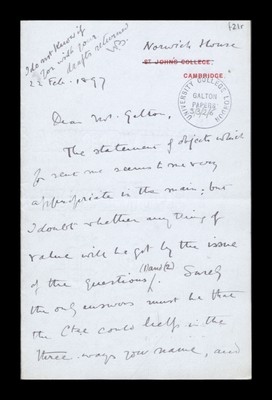 421r
I do not know if
you wish your
drafts returned
WB.
Norwich House
ST JOHNS COLLEGE,
CAMBRIDGE.
22 Feb. 1897
UNIVERSITY COLLEGE LONDON
GALTON
PAPERS
Dear Mr. Galton,
The statement of objects which
you sent me seems to me very
appropriate in the main; but
I doubt whether anything of
value will be got by the issue
of the questions (1 and (2)). Surely
the only answers must be that
the Ctee could help in the
three ways you name, and